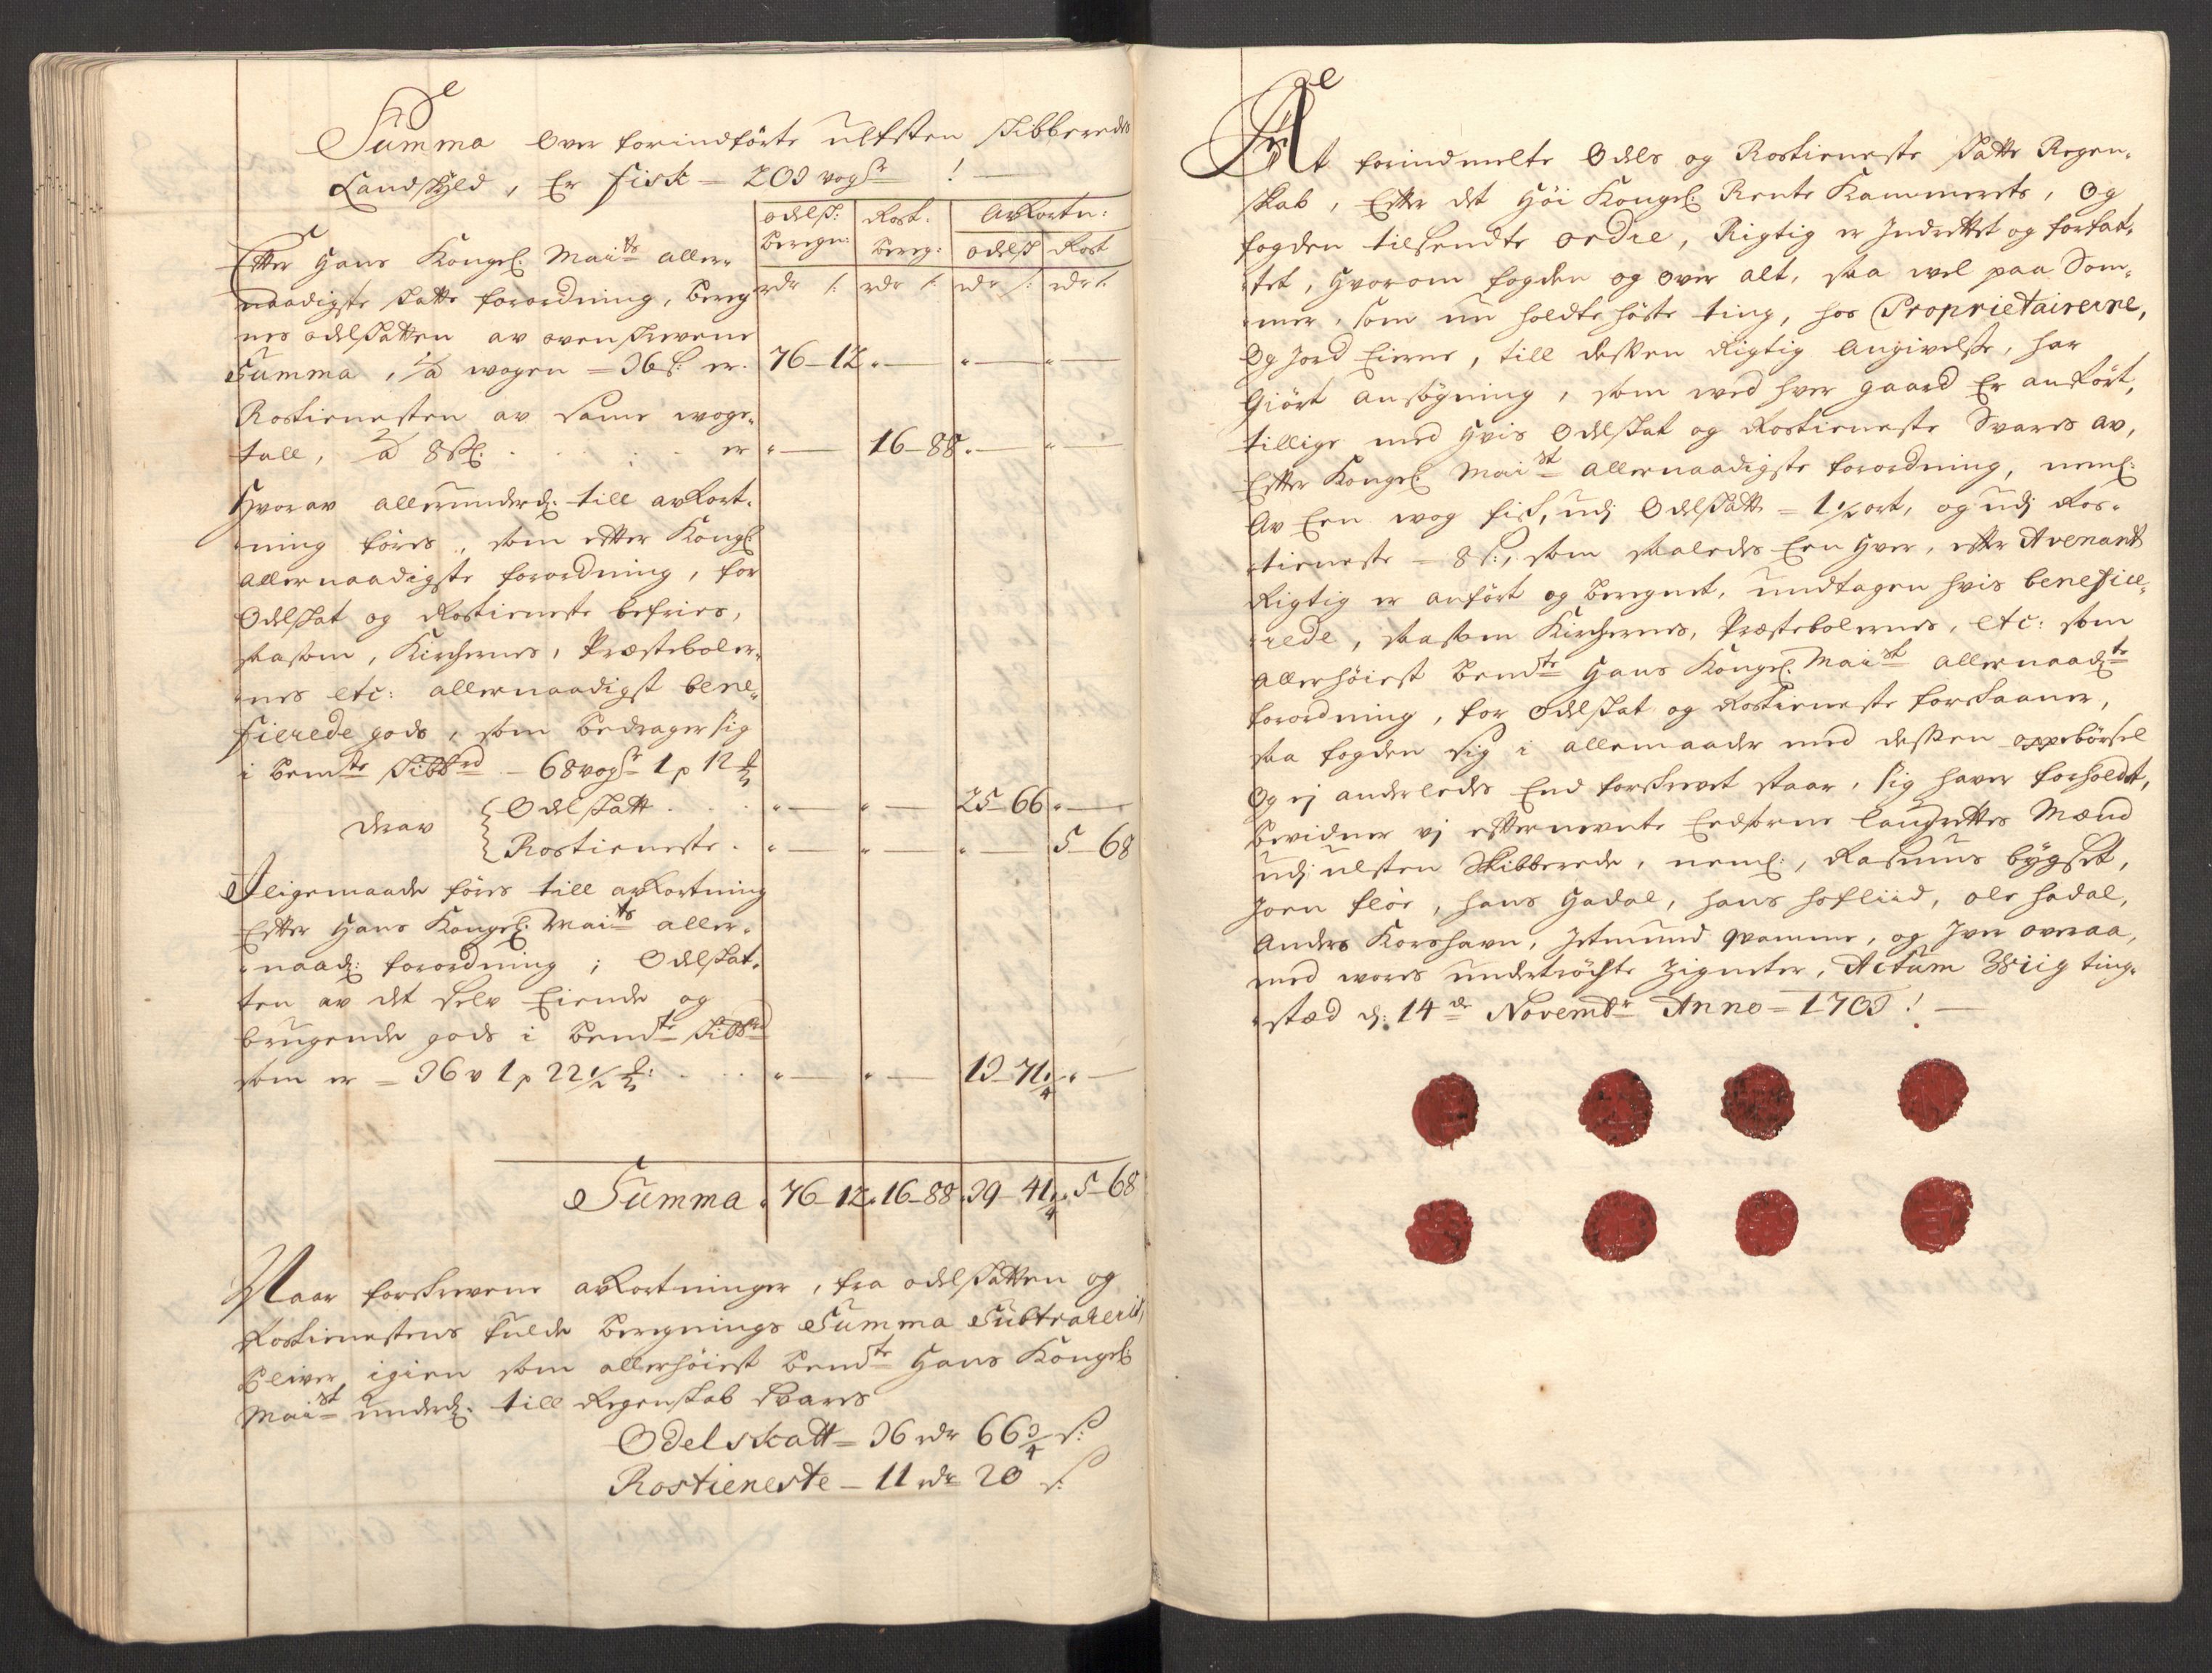 Summa Over forindförte ulfsten skibberedes
Landskyld, Er fisk = 203 vogr !
odelsk: beregn: | Rost. bereg: | Avkortn: odelsk | Rost
rdr s: | rdr s: | rdr s: | rdr s:
Efter Hans Kongel: Maits aller-
naadigste skatte forordning, bereg
nes odelskatten av ovenskrevene
Summa, a wogen = 36 s: er. 76-12
Rostienesten av same woge-
tall, a 8 sk: er 16-88
Hvorav allerunderd: till avkort-
ning föres, som efter Kongl:
allernaadigste forordning, for
Odelskat og Rostieneste befries,
saasom, Kirchernes, Præsteboler-
nes etc: allernaadigst bene-
ficerede gods, som bedrager sig
i bemte skibbrd - 68 vogr 1 p 12
derav { Odelskatt . . . 25-66
{ Rostieneste . 5-68
Iligemaade föres till avkortning
Efter Hans Kongel: Maits aller-
naad: forordning; Odelskat-
ten av det selv Eiende og
brugende gods i bemte skibbrd
som er = 36 v 1 p 22 1/2 : 13-71 1/4
Summa 76-12 16-88 39-41 1/4 5-68
Naar forskrevene avkortninger, fra odelskatten og
Rostienestens fulde beregnings Summa Subtraherit,
bliver igien som allerhöiest bemte Hans Kongel:
Maist underd: till Regenskab svares
Odelskatt = 36 rdr 66 3/4 s:
Rostieneste - 11 rdr 20 s:
At forindmelte Odels og Rostieneste skatte Regen-
skab, Efter det Höi Kongel: Rente Kammerets, Og
fogden tilsendte ordre, Rigtig er Indrettet og forfat-
tet, Hvorom fogden og over alt, saa wel paa Som-
mer, som nu holdte höste ting, hos Proprietairerne,
Og Jord Eierne, till dessen Rigtig Angivelse, har
Giört ansögning, som wed hver gaard Er anfört,
tillige med Hvis Odelskat og Rostieneste Svares av,
Efter Kongel: Maist allernaadigste forordning, neml:
Av Een wog fisk, udj Odelskatt = 1 1/2 ort, og udj Ros-
tieneste - 8 s:, som saaledes Een Hver, efter Avenant
Rigtig er anfört og beregnet, undtagen hvis benefice-
rede, saasom Kirchernes, Præstebolernes, etc: som
allerhöiest bemte Hans Kongel: Maist allernaadte
forordning, for Odelskat og Rostieneste forskaaner,
saa fogden sig i allemaader med dessen oppebörsel
Og ej anderledes End forskrevet staar, sig haver forholdt,
bevidner vj efternevnte Eedsorne laugrettes Mænd
udj ulsten Skibberede, neml:, Rasmus bygset,
Joen flöe, Hans Hadal, Hans hofliid, ole hadal,
Anders Korshavn, Jetmund qvamme, og Iver overaa,
med wores undertröchte Zigneter, Actum Wiig ting-
sted d: 14de Novembr Anno = 1703 !